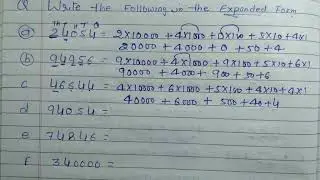 Q Write the Following in the Expanded Form
TTh Th H T O
(a) 24054 = 2x10000 + 4x1000 + 0x100 + 5x10 + 4x1
20000 + 4000 + 0 + 50 + 4
(b) 94956 = 9x10000 + 4x1000 + 9x100 + 5x10 + 6x1
90000 + 4000 + 900 + 50 + 6
(c) 46544 = 4x10000 + 6x1000 + 5x100 + 4x10 + 4x1
40000 + 6000 + 500 + 40 + 4
d 94054 =
e 74846 =
f 340000 =